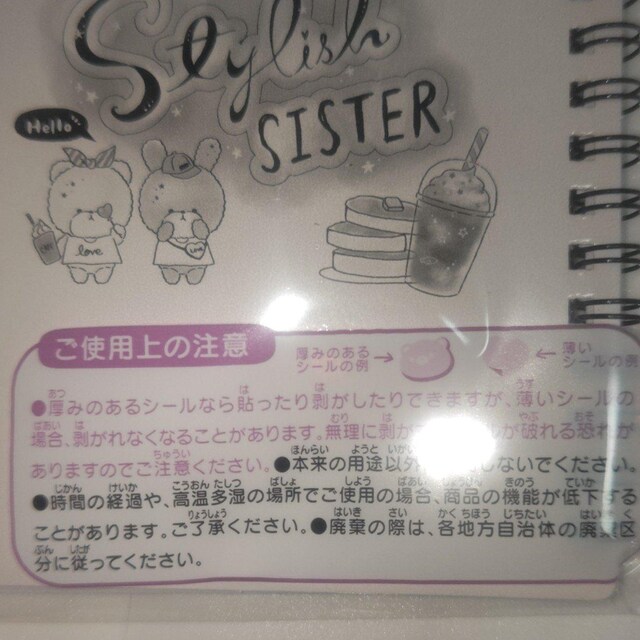 Stylish
SISTER
Hello
love
ご使用上の注意
厚みのある
シールの例
薄い
シールの例
●厚みのあるシールなら貼ったり剥がしたりできますが、薄いシールの
場合、剥がれなくなることがあります。無理に剥が ルが破れる恐れが
ありますのでご注意ください。●本来の用途以外 しないでください。
●時間の経過や、高温多湿の場所でご使用の場合、商品の機能が低下する
ことがあります。ご了承ください。●廃棄の際は、各地方自治体の廃棄区
分に従ってください。